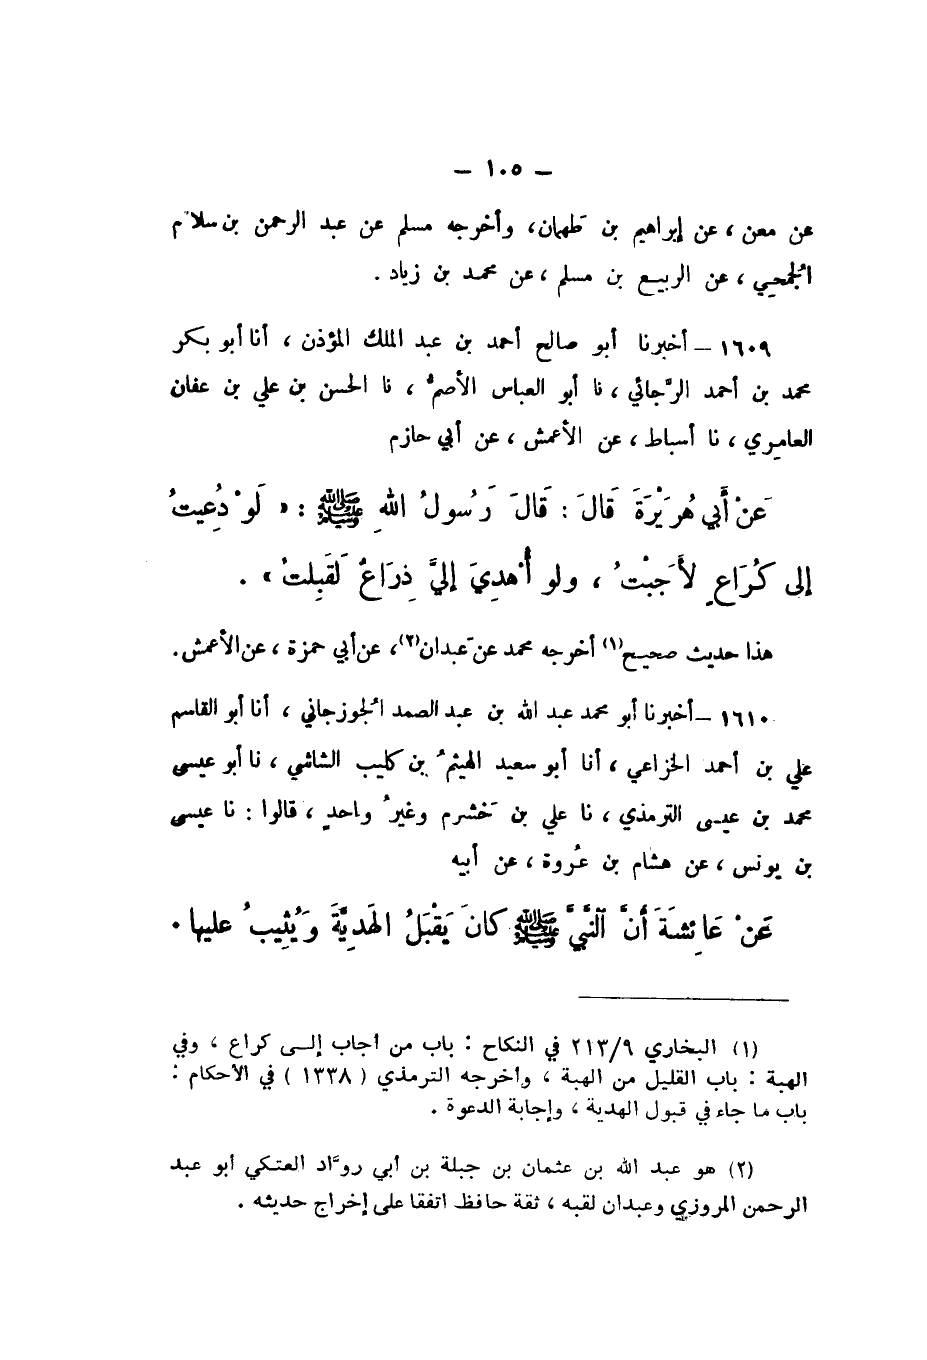 — ١٠٥ —
عن معن ، عن إبراهيم بن طَهمان، وأخرجه مسلم عن عبد الرحمن بن سلاّم
الجُمحي ، عن الربيع بن مسلم ، عن محمد بن زياد .
١٦٠٩ — أخبرنا أبو صالح أحمد بن عبد الملك المؤذن ، أنا أبو بكر
محمد بن أحمد الرَّجائي ، نا أبو العباس الأصمُّ ، نا الحسن بن علي بن عفان
العامري ، نا أسباط ، عن الأعمش ، عن أبي حازم
عَنْ أَبي هُرَيْرَةَ قَالَ : قَالَ رَسُولُ اللهِ ﷺ : « لَوْ دُعِيتُ
إلى كُرَاعٍ لأَجَبْتُ ، ولو أُهْدِيَ إليَّ ذِرَاعٌ لَقَبِلتُ » .
هذا حديث صحيح(١) أخرجه محمد عن عَبدان(٢)، عن أبي حمزة ، عن الأعمش .
١٦١٠ — أخبرنا أبو محمد عبد الله بن عبد الصمد الجُوزجاني ، أنا أبو القاسم
علي بن أحمد الخزاعي ، أنا أبو سعيد الهيثمُ بن كليب الشاشي ، نا أبو عيسى
محمد بن عيسى الترمذي ، نا علي بن خَشرم وغيرُ واحدٍ ، قالوا : نا عيسى
بن يونس ، عن هشام بن عُروة ، عن أبيه
عَنْ عَائِشَةَ أَنَّ النَّبيَّ ﷺ كانَ يَقْبَلُ الهَدِيَّةَ وَيُثِيبُ عليها .
(١) البخاري ٢١٣/٩ في النكاح : باب من أجاب إلى كراع ، وفي
الهبة : باب القليل من الهبة ، وأخرجه الترمذي ( ١٣٣٨ ) في الأحكام :
باب ما جاء في قبول الهدية ، وإجابة الدعوة .
(٢) هو عبد الله بن عثمان بن جبلة بن أبي روَّاد العتكي أبو عبد
الرحمن المروزي وعبدان لقبه ، ثقة حافظ اتفقا على إخراج حديثه .